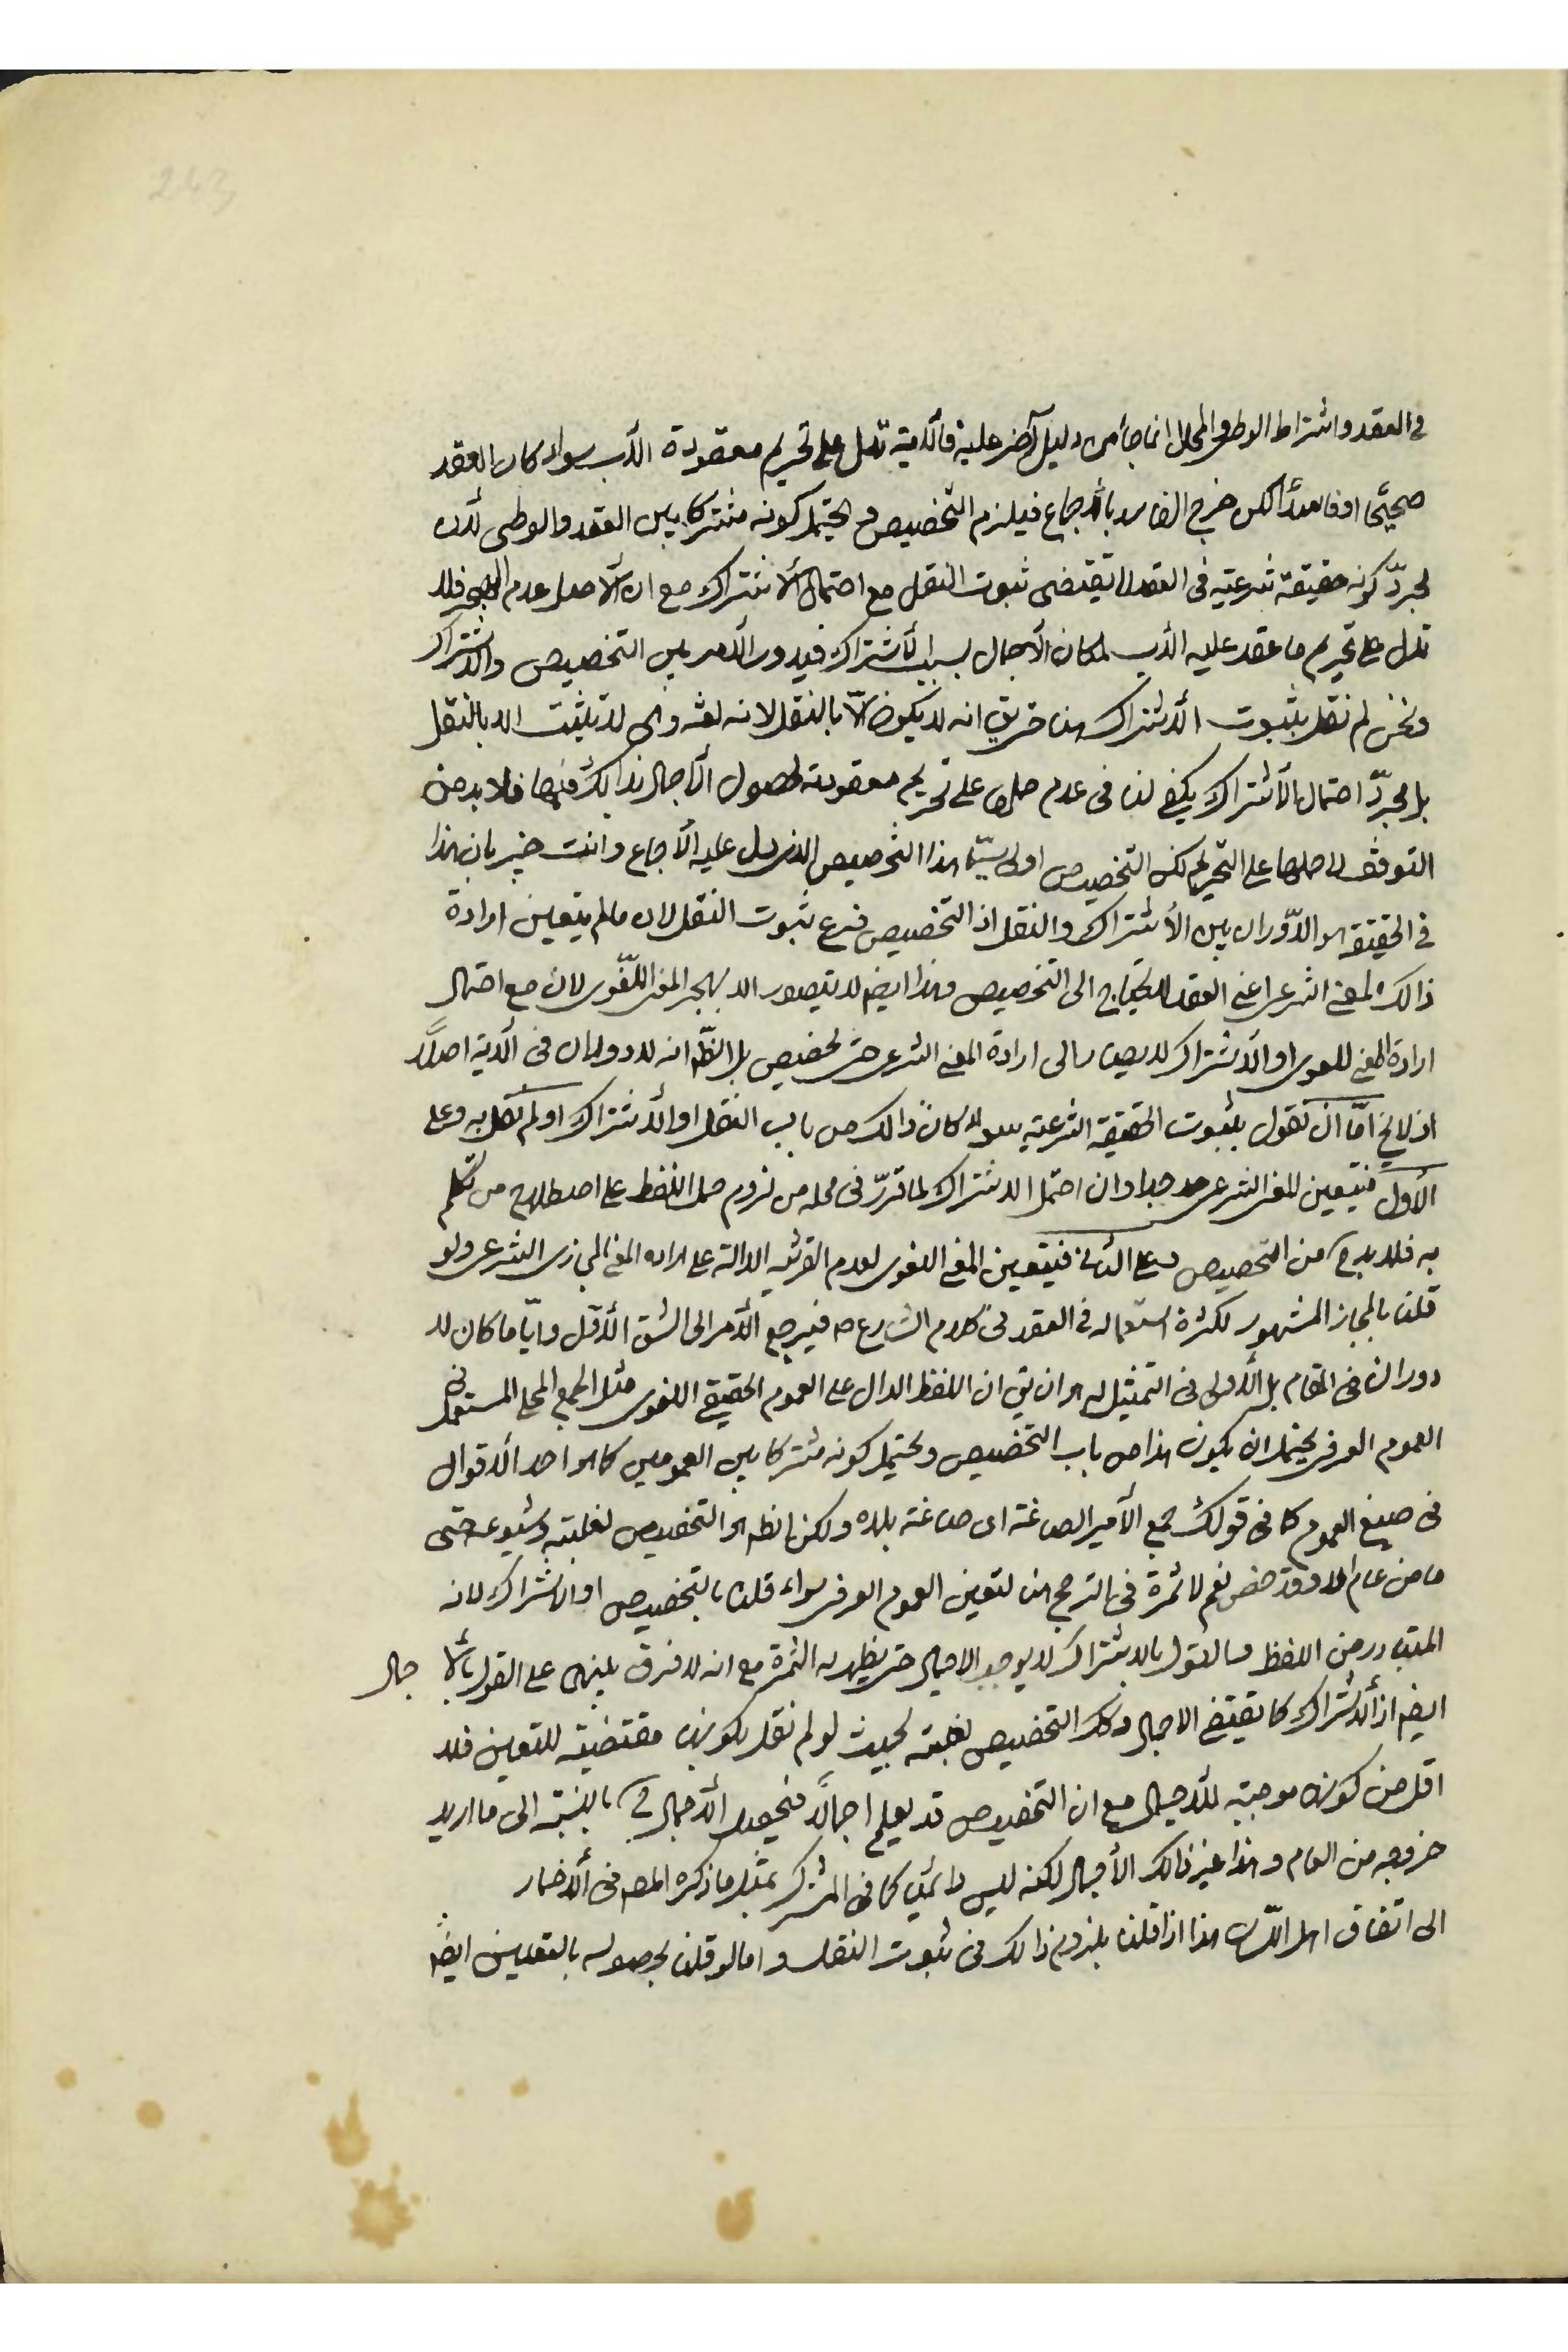 243
في العقد واشتراط الوطي في المحلل انما جاء من دليل آخر عليه فالآية تدل على تحريم معقودة الأب سواء كان العقد
صحيحًا او فاسدًا لكن خرج الفاسد بالأجماع فيلزم التخصيص ويحتمل كونه مشتركا بين العقد والوطي لأن
مجرّد كونه حقيقة شرعية في العقد لا يقتضى ثبوت النقل مع احتمال الأشتراك مع ان الأصل عدم الهجر فلا
تدل على تحريم ما عقد عليه الأب لمكان الأجمال بسبب الأشتراك فيدور الأمر بين التخصيص والاشتراك
ونحن لم نقل بثبوت الأشتراك هنا حتى يق انه لا يكون الّا بالنقل لانه لغة وهى لا تثبت الا بالنقل
بل مجرّد احتمال الأشتراك يكفى لنا فى عدم حملها على تحريم معقودته لحصول الأجمال بذالك فيها فلا بد من
التوقف لا حملها على التحريم لكن التخصيص اولى سيّما هذا التخصيص الذى دل عليه الأجماع وانت خبير بان هذا
في الحقيقة هو الدّوران بين الأشتراك والنقل اذ التخصيص فرع ثبوت النقل لان مالم يتعين ارادة
ذالك المعنى الشرعى اعنى العقد لا يحتاج الى التخصيص وهذا ايضا لا يتصور الا بهجر المعنى اللّغوى لان مع احتمال
ارادة المعنى اللغوى او الأشتراك لا يصار الى ارادة المعنى الشرعى حتى يخصص بل الظّ انه لا دوران فى الآية اصلًا
اذ لا يخ امّا ان نقول بثبوت الحقيقة الشرعية سواء كان ذالك من باب النقل او الأشتراك او لم نقل به وعلى
الأول فيتعين المعنى الشرعى وان احتمل الاشتراك لما تقرّر فى محله من لزوم حمل اللفظ على اصطلاح من تكلم
به فلا بد ح من التخصيص وعلى الثانى فيتعين المعنى اللغوى لعدم القرينة الدالة على ارادة المعنى المجازى الشرعى ولو
قلنا بالمجاز المشهور لكثرة استعماله في العقد فى كلام الشارع ص فيرجع الأمر الى الشق الأول وايّا ما كان لا
دوران فى المقام بل الأولى فى التمثيل له هو ان يق ان اللفظ الدال على العموم الحقيقى اللغوى مثل الجمع المحلى المستعمل فى
العموم العرفى يحتمل ان يكون هذا من باب التخصيص ويحتمل كونه مشتركا بين العمومين كما هو احد الأقوال
فى صيغ العموم كما فى قولك جمع الأمير الصاغة اى صاغة بلده ولكن الظ هو التخصيص لغلبته وشيوعه حتى
ما من عام الا وقد خص نعم لا ثمرة فى الترجيح هنا لتعين العموم العرفى سواء قلنا بالتخصيص او الاشتراك لانه
المتبادر من اللفظ فالقول بالاشتراك لا يوجب الاجمال حتى يظهر به الثمرة مع انه لا فرق بينهما على القول بالأجمال
ايضا اذ الأشتراك كما يقتضى الاجمال وكك التخصيص لغلبته بحيث لو لم نقل بكونها مقتضية للتعين فلا
اقل من كونها موجبة للأجمال مع ان التخصيص قد يعلم اجمالًا فيحصل الأجمال ح بالنسبة الى ما اريد
خروجه من العام وهذا غير ذالك الأجمال لكنه ليس دائميا كما فى المشترك بمثل ما ذكره المص فى الأضمار
الى اتفاق اهل اللّسان هذا اذا قلنا بلزوم ذالك فى ثبوت النقل واما لو قلنا بحصوله بالتعين ايضًا